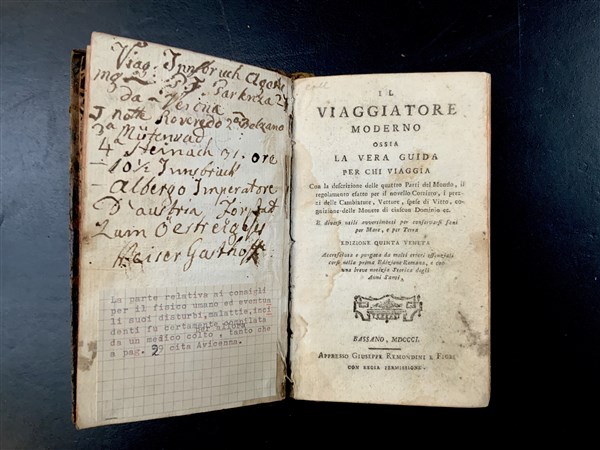 Viag: Innsbruch Agosto
Partenza 27
da Verona
notte Roveredo 2ª Bolzano
3ª
4ª Steinach 31. ore
10½ Innsbruch
Albergo Imperatore
D'austria
Zum Oestreichs
Kaiser Gasthoff
La parte relativa ai consigli
per il fisico umano ed eventua
li suoi disturbi, malattie, inci
denti fu certamente compilata
per allora
da un medico colto, tanto che
a pag. 29 cita Avicenna.
IL
VIAGGIATORE
MODERNO
OSSIA
LA VERA GUIDA
PER CHI VIAGGIA
Con la descrizione delle quattro Parti del Mondo, il
regolamento esatto per il novello Corriere, i prez-
zi delle Cambiature, Vetture, spese di Vitto, co-
gnizione delle Monete di ciascun Dominio ec.
E diversi utili avvertimenti per conservarsi sani
per Mare, e per Terra
EDIZIONE QUINTA VENETA
Accresciuta e purgata da molti errori essenziali
corsi nella prima Edizione Romana, e con
una breve notizia Storica degli
Anni Santi.
BASSANO, MDCCCI.
APPRESSO GIUSEPPE REMONDINI E FIGLI
CON REGIA PERMISSIONE.